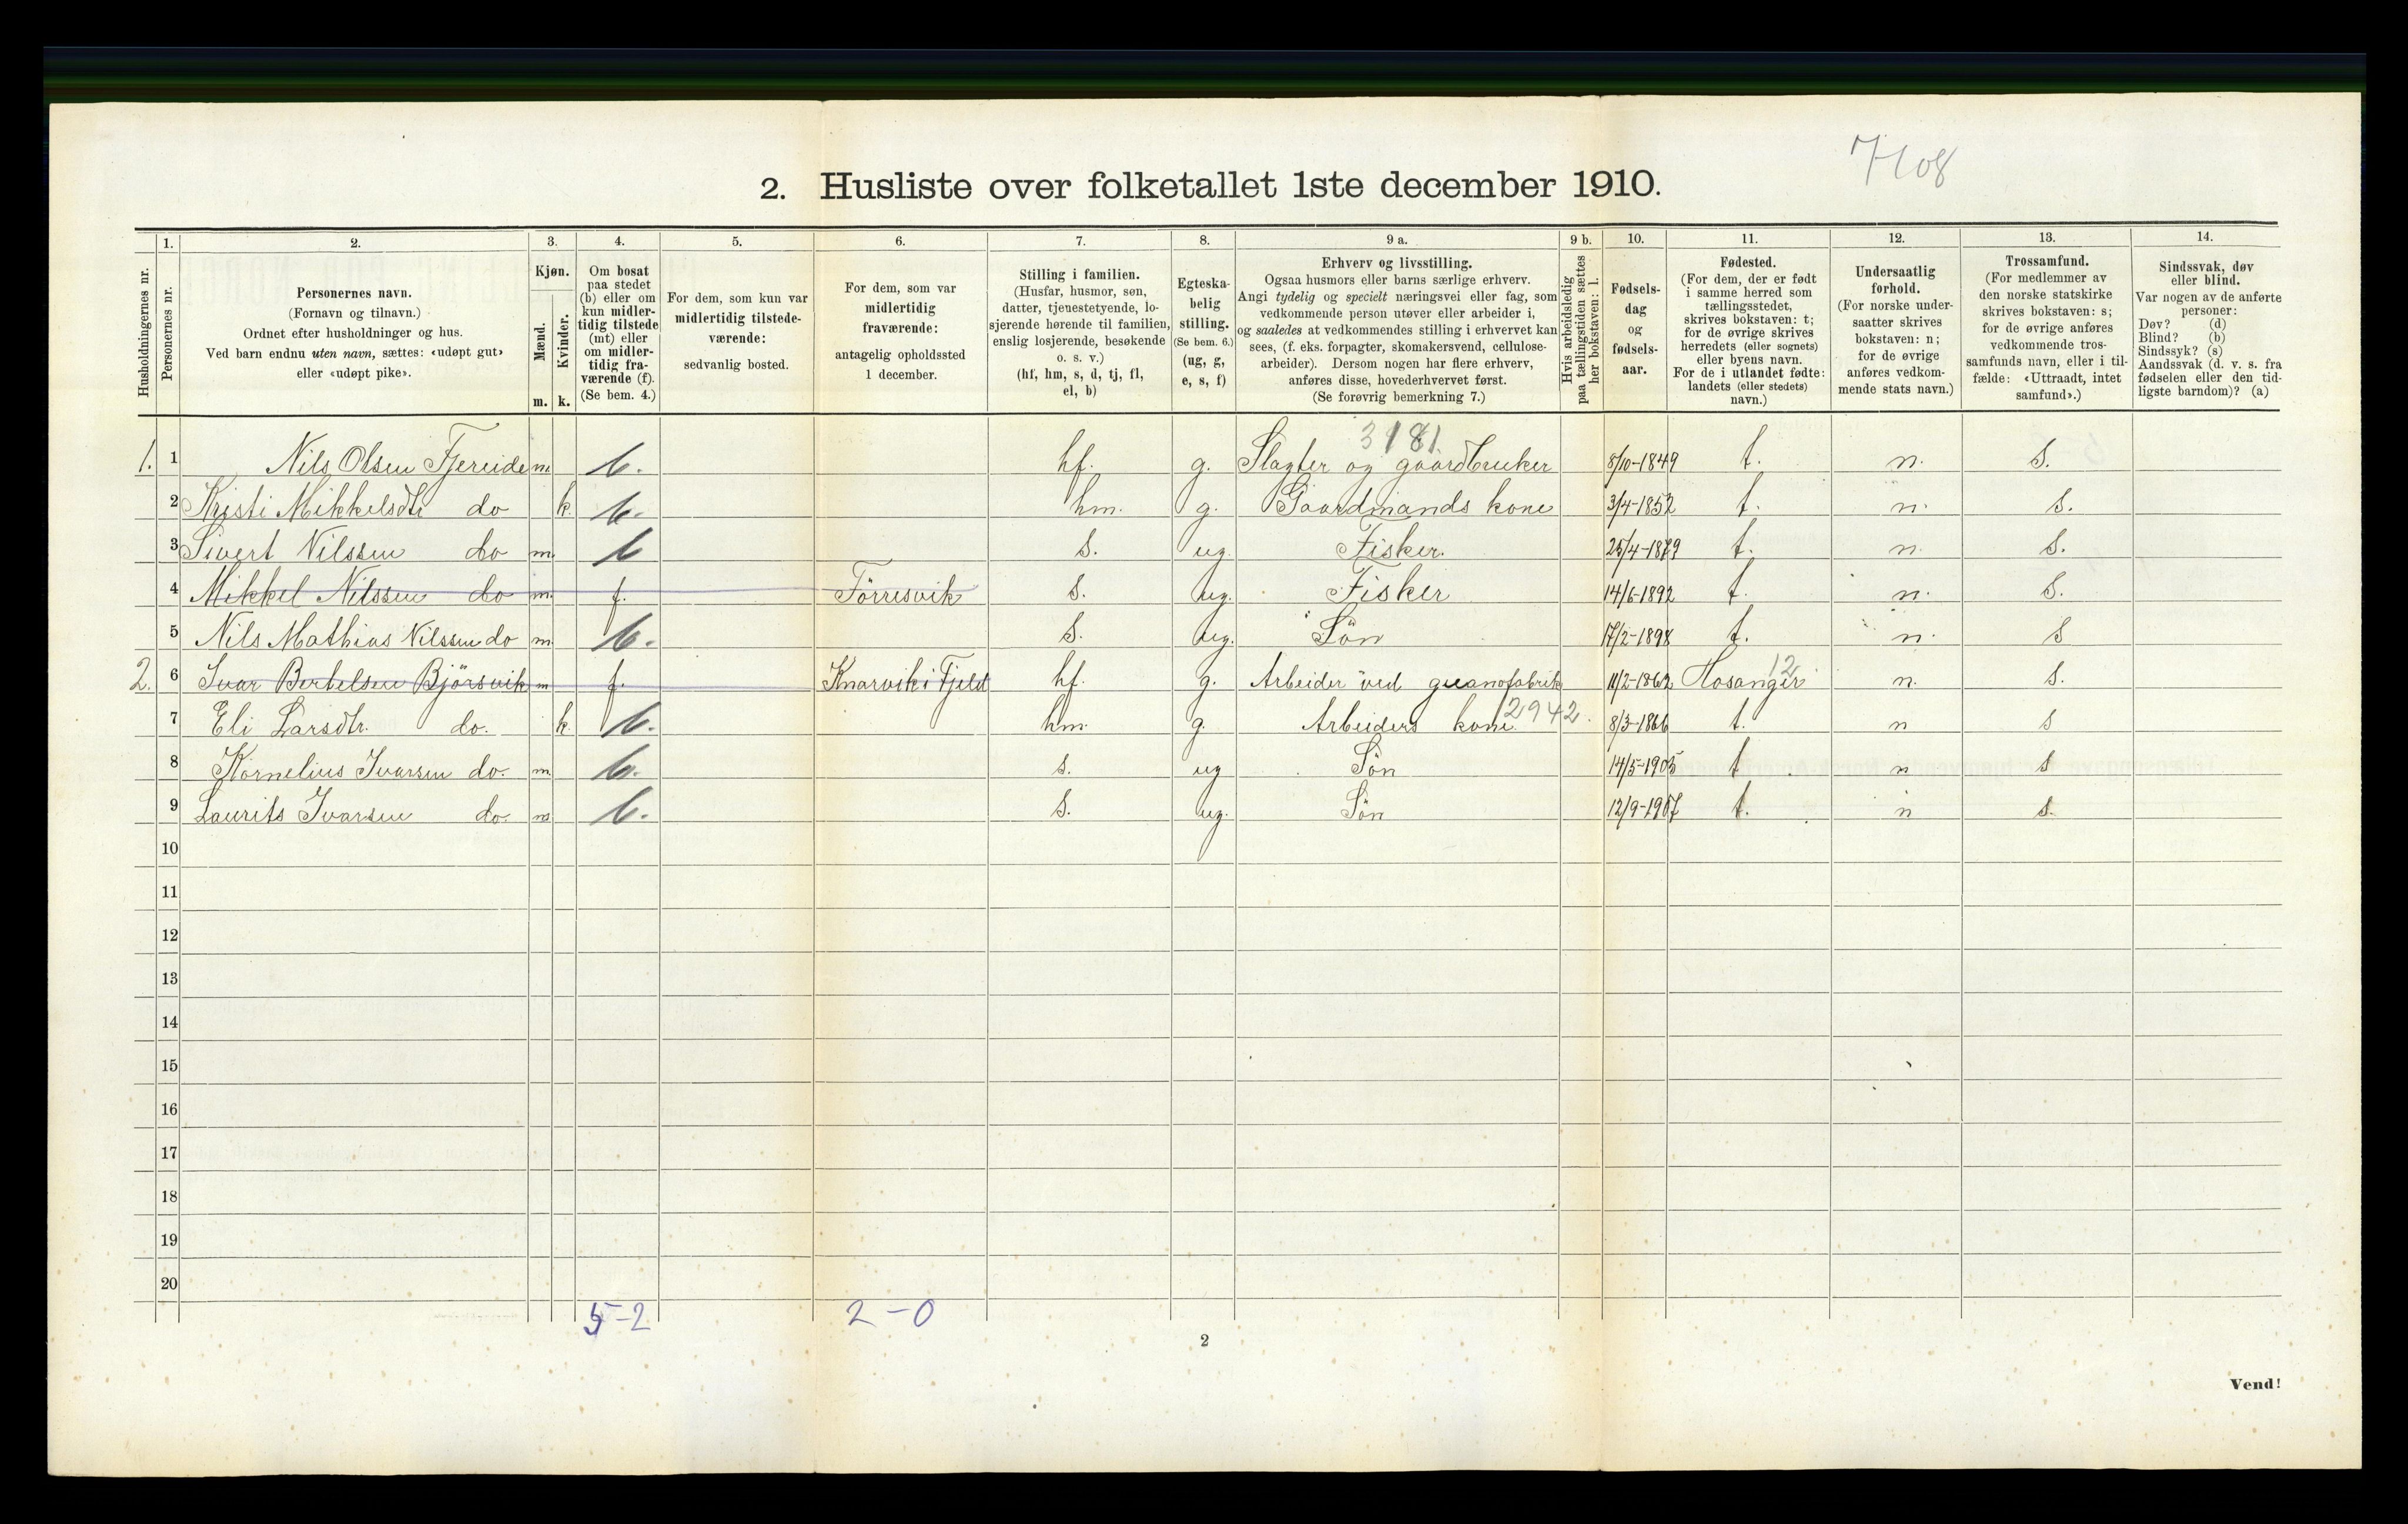 7108
2. Husliste over folketallet 1ste december 1910.
Husholdningernes nr.
1.
Personernes nr.
2.
Personernes navn.
(Fornavn og tilnavn.)
Ordnet efter husholdninger og hus.
Ved barn endnu uten navn, sættes: «udøpt gut»
eller «udøpt pike».
3.
Kjøn.
Mænd.
Kvinder.
m. k.
4.
Om bosat
paa stedet
(b) eller om
kun midler-
tidig tilstede
(mt) eller
om midler-
tidig fra-
værende (f).
(Se bem. 4.)
5.
For dem, som kun var
midlertidig tilstede-
værende:
sedvanlig bosted.
6.
For dem, som var
midlertidig
fraværende:
antagelig opholdssted
1 december.
7.
Stilling i familien.
(Husfar, husmor, søn,
datter, tjenestetyende, lo-
sjerende hørende til familien,
enslig losjerende, besøkende
o. s. v.)
(hf, hm, s, d, tj, fl,
el, b)
8.
Egteska-
belig
stilling.
(Se bem. 6.)
(ug, g,
e, s, f)
9 a.
Erhverv og livsstilling.
Ogsaa husmors eller barns særlige erhverv.
Angi tydelig og specielt næringsvei eller fag, som
vedkommende person utøver eller arbeider i,
og saaledes at vedkommendes stilling i erhvervet kan
sees, (f. eks. forpagter, skomakersvend, cellulose-
arbeider). Dersom nogen har flere erhverv,
anføres disse, hovederhvervet først.
(Se forøvrig bemerkning 7.)
9 b.
Hvis arbeidsledig
paa tællingstiden sættes
her bokstaven: l.
10.
Fødsels-
dag
og
fødsels-
aar.
11.
Fødested.
(For dem, der er født
i samme herred som
tællingsstedet,
skrives bokstaven: t;
for de øvrige skrives
herredets (eller sognets)
eller byens navn.
For de i utlandet fødte:
landets (eller stedets)
navn.)
12.
Undersaatlig
forhold.
(For norske under-
saatter skrives
bokstaven: n;
for de øvrige
anføres vedkom-
mende stats navn.)
13.
Trossamfund.
(For medlemmer av
den norske statskirke
skrives bokstaven: s;
for de øvrige anføres
vedkommende tros-
samfunds navn, eller i til-
fælde: «Uttraadt, intet
samfund».)
14.
Sindssvak, døv
eller blind.
Var nogen av de anførte
personer:
Døv? (d)
Blind? (b)
Sindssyk? (s)
Aandssvak (d. v. s. fra
fødselen eller den tid-
ligste barndom)? (a)
3181
1. 1 Nils Olsen Fjereide m. b. hf. g. Slagter og gaardbruker 8/10-1849 t. n. s.
2 Kristi Mikkelsdtr do k. b. hm. g. Gaardmands kone 3/4-1852 t. n. s.
3 Sivert Nilssen do m. b s. ug. Fisker. 25/4-1879 t. n. s.
4 Mikkel Nilssen do m. f. Törresvik s. ug. Fisker 14/6-1892 t. n. s.
5 Nils Mathias Nilssen do m. b. s. ug. Sön 17/2-1898 t. n. s
2. 6 Ivar Bertelsen Björsvik m f. Knarvik i Fjeld hf. g. Arbeider ved guanofabrik 11/2-1862 Hosanger 12 n. s.
7 Eli Larsdtr. do. k. b. hm. g. Arbeiders kone. 2942. 8/3-1866 t. n s
8 Kornelius Ivarsen do. m. b. s. ug Sön 14/5-1905 t n s
9 Laurits Ivarsen do. m b. s. ug. Sön 12/9-1907 t. n s.
10
11
12
13
14
15
16
17
18
19
20
5-2 2-0
2
Vend!